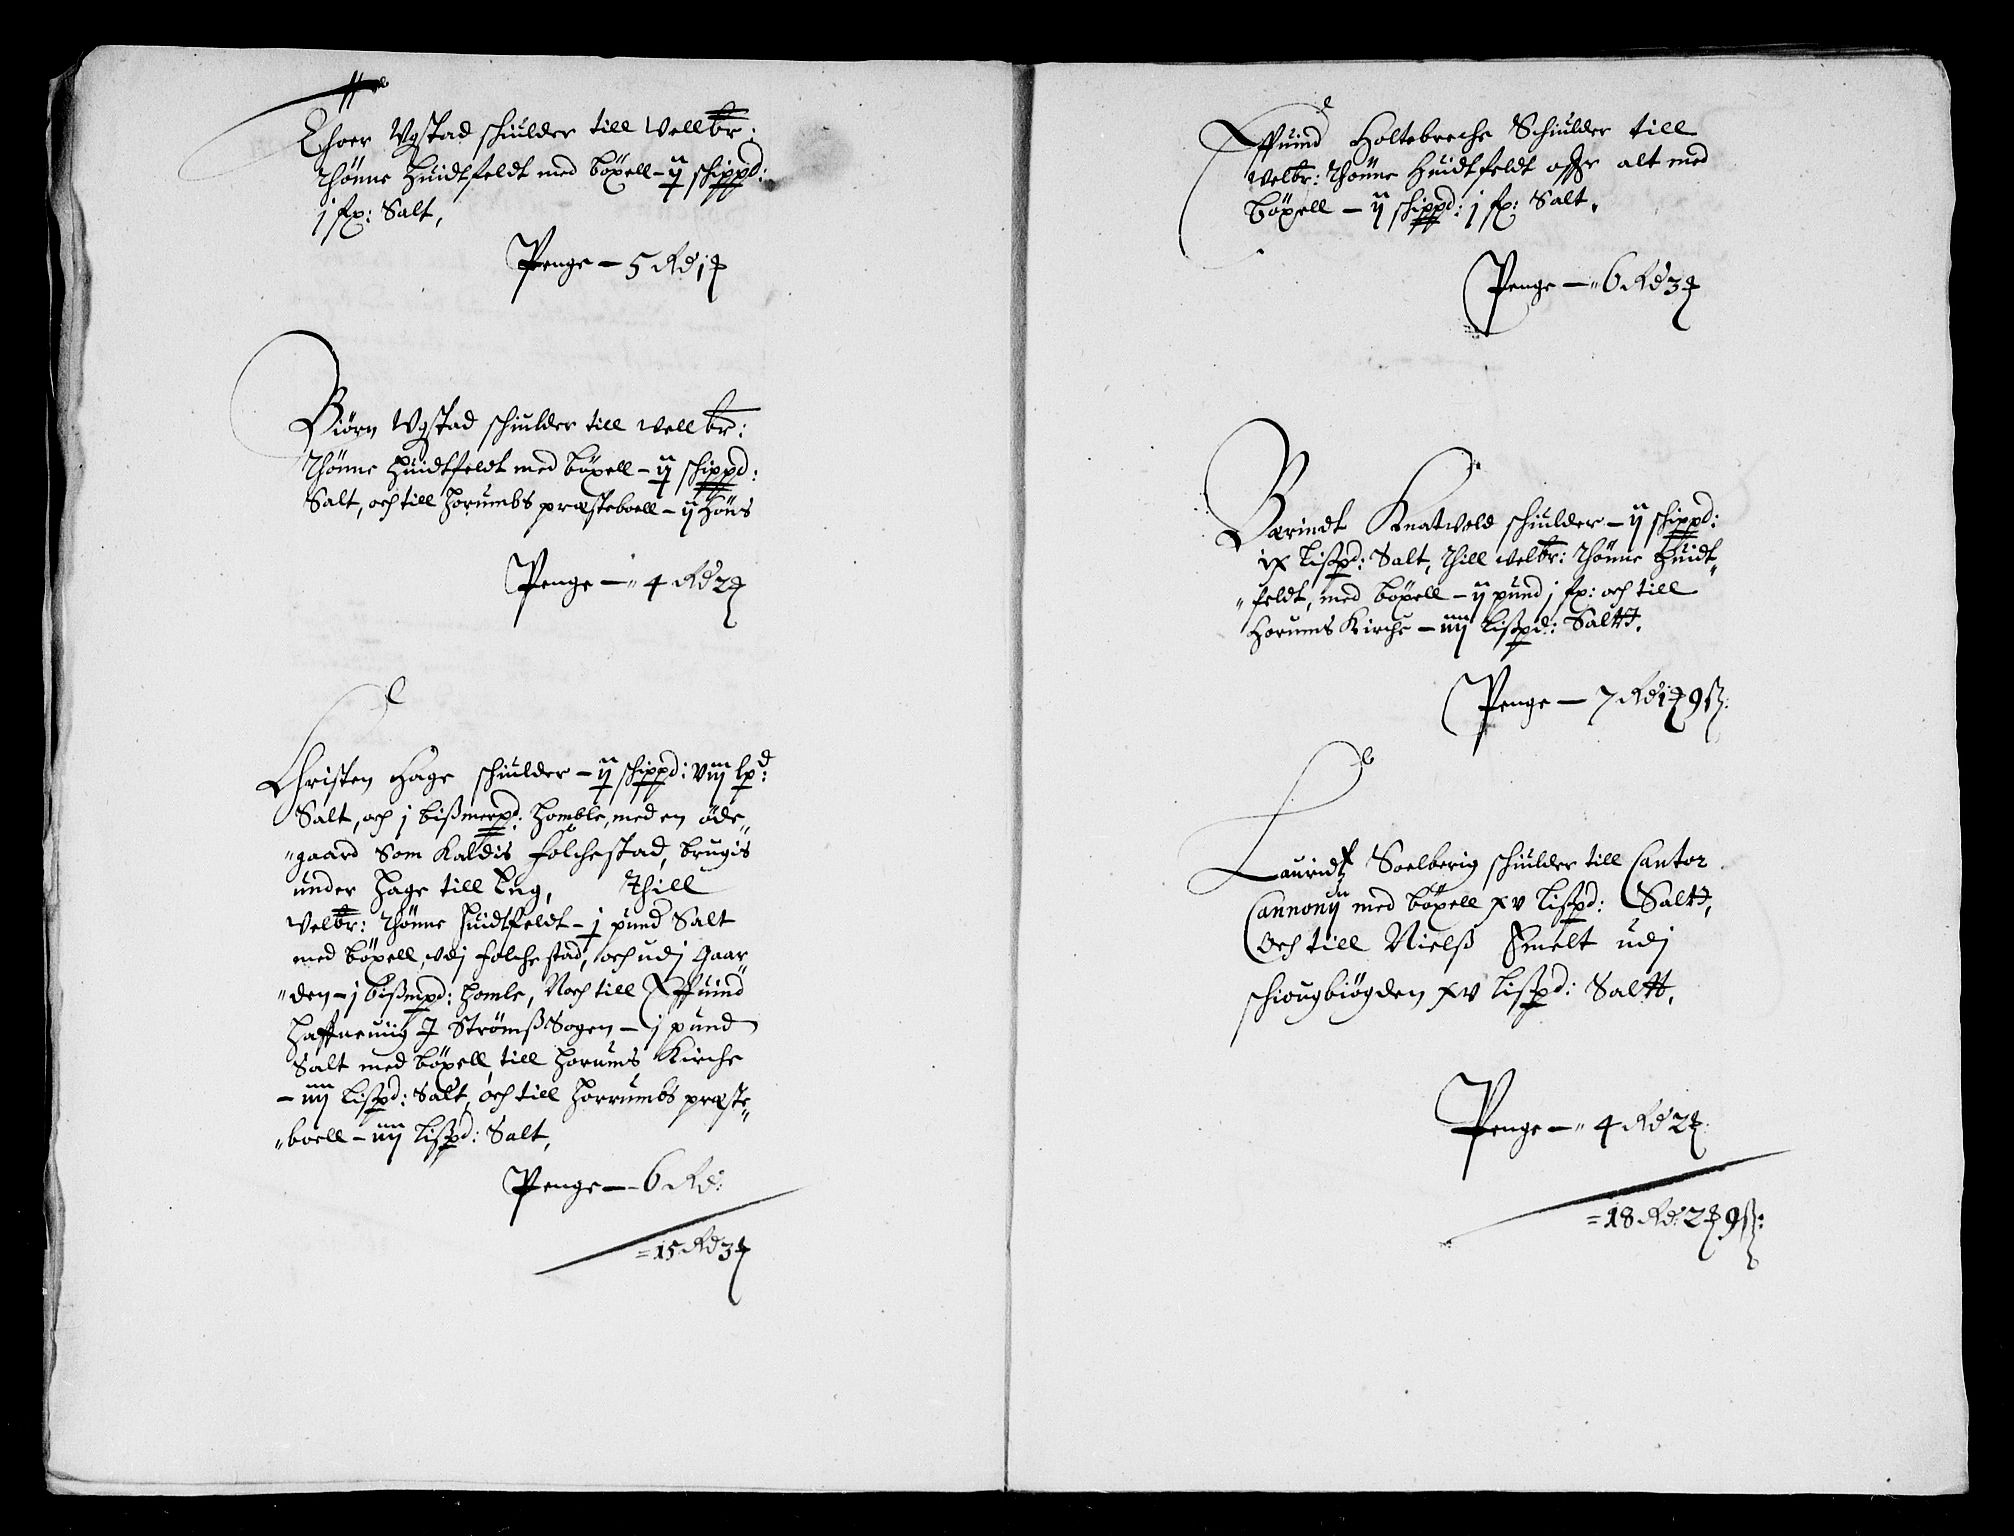 Thoer Ugstad schiulder till Vellbr:
Thönne Huidtfeldt med böxell – ij schippd:
j fx: Salt,
Penge – 5 Rd 1
Biörn Ugstad schiulder till Vellbr:
Thönne Huidtfeldt med böxell – ij schippd:
Salt, och till Horumbs præsteboell – ij Höns
Penge – 4 Rd 2
Christen Hage schiulder – ij schippd: viij lpd:
Salt, och j bißmerpd: Homble, med en öde„
„gaard Som Kaldis Folchestad, brugis
under Hage till Eng, Thill
Velbr: Thönne Huidtfeldt – j pund Salt
med böxell, udj Folchestad, och udj Gaar„
„den – j bißmpd: Homle, Noch till Effuind
Haffneuiig J Strömß Sogen – j pund
Salt med böxell, till Horums Kirche
– iiij Lißpd: Salt, och till Horrumbs præste„
„boell – iiij Lißpd: Salt,
Penge – 6 Rd:
= 15 Rd 3
Effuind Holtebreche Schiulder till
Velbr: Thönne Huidtfeldt offr alt med
böxell – ij schippd: j fx: Salt.
Penge – 6 Rd 3
Berindt Knatvold schiulder – ij schippd:
ix Lißpd: Salt, Thill Velbr: Thönne Huidt„
„feldt, med böxell – ij pund j fx: och till
Horums Kirche – iiij Lißpd: Saltt.
Penge – 7 Rd 1 9 ß:
Lauridtz Soelberig schiulder till Cantor
Cannonij med böxell xv Lißpd: Saltt,
Och till Nielß Smelt udj
schiougbiögden xv Lißpd: Saltt.
Penge – 4 Rd 2
= 18 Rd: 2 9 ß: